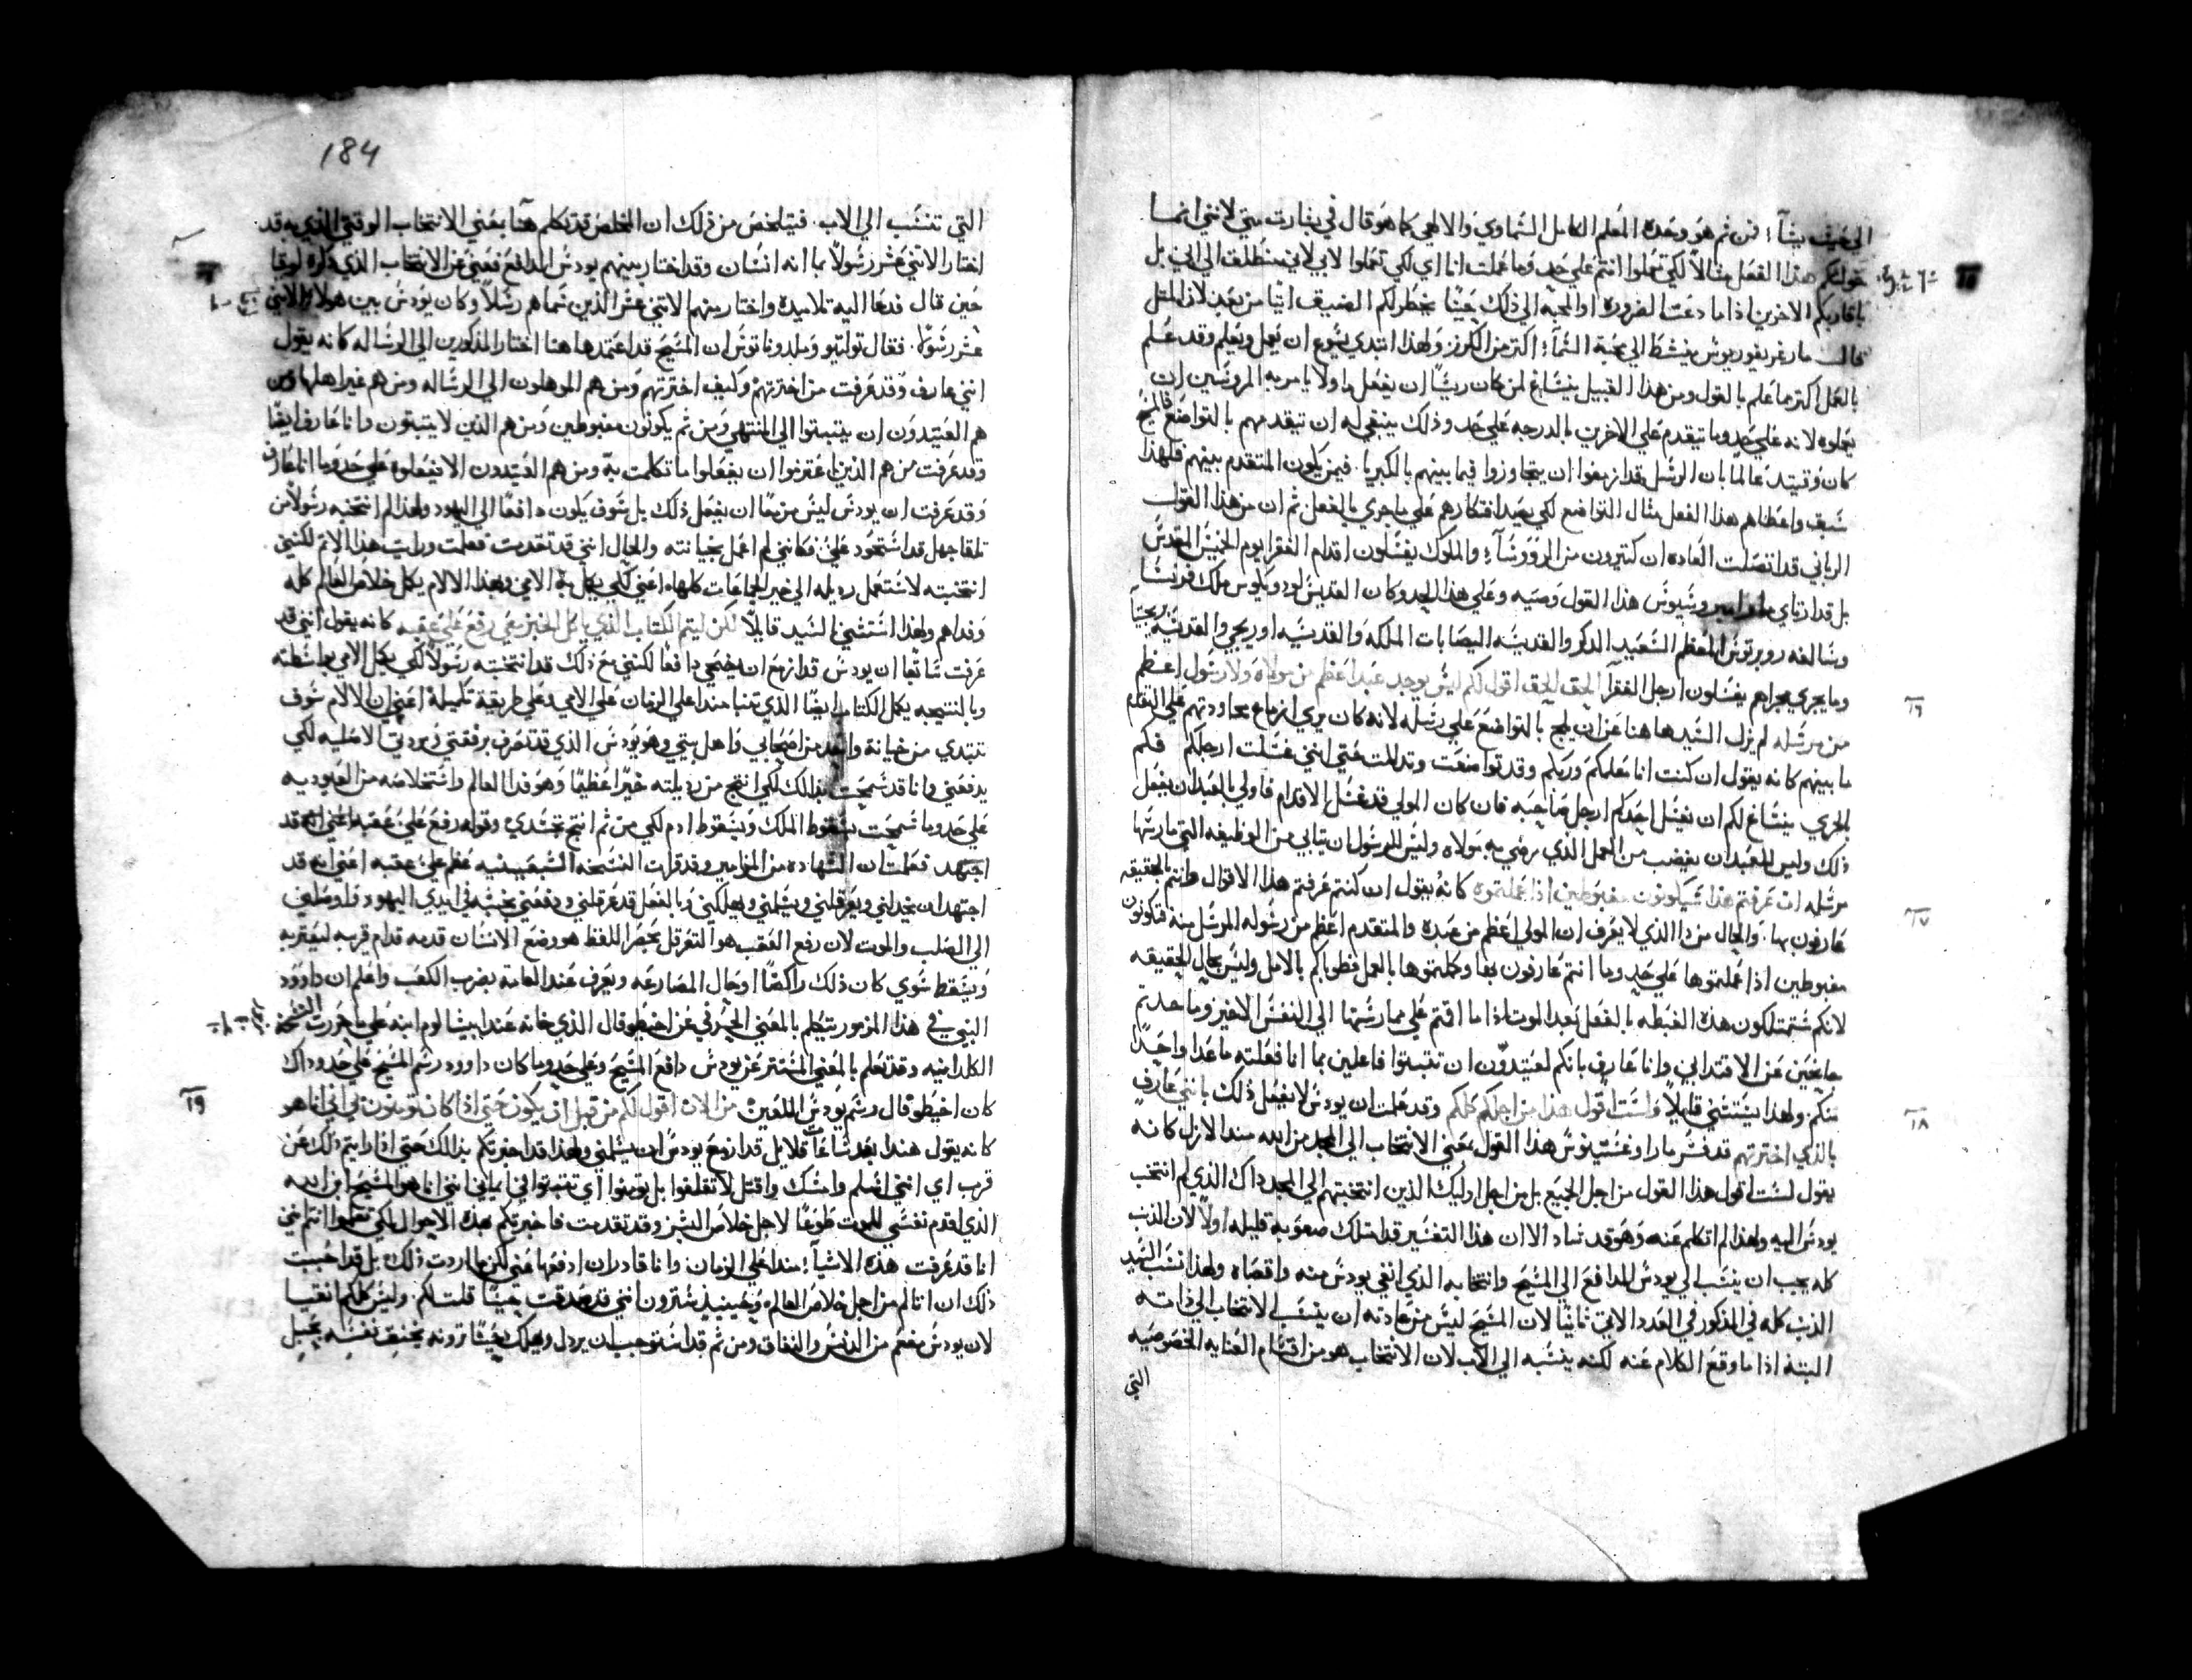 الي حيث يشآ؛ فمن ثم هو وحده المعلم الكامل السماوي والالهي كما هو قال في بشارت متي لانني انما
خولتكم هذا الفعل مثالاً لكي تعملوا انتم علي حد وما عملت انا اي لكي تعملوا لابي لاني منطلق الي ابي بل
باقاربكم الاخرين اذا ما دعت الضروره او المحبه الي ذلك حيثما يخطر لكم الضيق اتيا من بعد لان المثل
قال مار غريغوريوس ينشط الي محبة السمآ؛ اكثر من الكرز ولهذا ابتدي يسوع ان يعمل ويعلم وقد علم
بالعمل اكثر مما علم بالقول ومن هذا القبيل ينساغ لمن كان ريسًا ان يفعل ما ولا يامر به المروسين ان
يعملوه لانه علي حد وما تيقدم علي الاخرين بالدرجه علي حد وذلك ينبغي له ان تيقدمهم بالتواضع فالمسيح
كان وقتيد عالما بان الرسل قد ازمعوا ان يتجاوزوا فيما بينهم بالكبريا. فيمن يكون المتقدم بينهم فلهذا
سبق واعطاهم هذا الفعل مثال التواضع لكي يعيد افتكارهم علي ما جري بالفعل ثم ان من هذا القول
الرباني قد اتصلت العاده ان كثيرون من الروسآ؛ والملوك يغسلون اقدام الفقرا يوم الخميس المقدس
بل قد ارتاي وسيوس هذا القول وصيه وعلي هذا الحد وكان القديس لودويكوس ملك فرنسا
وسالفه روبرتوس المعظم السعيد الذكر والقديسه اليصابات الملكه والقديسه اوريجي والقديسه بريجيتا
وما يجري مجراهم يغسلون ارجل الفقرآ الحق الحق اقول لكم ليس يوجد عبد اعظم من مولاه ولا رسول اعظم
من مرسله لم يزل السيد هاهنا عن ان يلج بالتواضع علي رسله لانه كان يري ازماع مجاودتهم علي التقدم
ما بينهم كانه يقول ان كنت انا معلمكم وربكم وقد تواضعت وتدللت حتي انني غسلت ارجلكم فلكم
بالحري ينساغ لكم ان يغسل احدكم ارجل صاحبه فان كان المولي قد غسل الاقدام فاولي بالعبد ان يفعل
ذلك وليس للعبد ان يغضب من العمل الذي يرضي به مولاه وليس للرسول ان يتابي من الوظيفه التي مارسها
مرسله ان عرفتم هذا ستكونون مغبوطين اذا عملتموه كانه يقول ان كنتم عرفتم هذا الاقوال وانتم بالحقيقه
عارفون بها. والحال من ذا الذي لا يعرف ان المولي اعظم من عبده والمتقدم اعظم من رسوله المرسل منه فتكونون
مغبوطين اذا عملتموها علي حد وما انتم عارفون بها وحملتموها بالعمل فطوباكم بالامل وليس بحال الحقيقه
لانكم ستمتلكون هذه الغبطه بالفعل بعد الموت اذا ما اقمتم علي ممارستها الي النفس الاخير وما حدتم
جانحين عن الاقتدا بي وانا عارف بانكم لعتيدون ان تتبتوا فاعلين بما انا فعلته ما عدا واحدًا
منكم ولهذا يستثني قايلاً ولست اقول هذا من اجلكم كلكم وقد علمت ان يودس لا يفعل ذلك بانني عارف
بالذي اخترتهم قد فسر مار اوغسثينوس هذا القول بمعني الانتخاب الي المجد من الله منذ الازل كانه
يقول لست اقول هذا القول من اجل الجميع بل من اجل اوليك الذين انتخبتهم الي المجد داك الذي لم انتخب
يودس اليه ولهذا لم اتكلم عنه وهو قد تساد الا ان هذا التفسير قد امتلك صعوبه قليله اولاً لان الذنب
كله يجب ان ينسب الي يودس الدافع الي المسيح وانتخابه الذي انفي يودس منه واقصاه ولهذا نسب السيد
الذنب كله في المذكور في العدد الاتي ثانيًا لان المسيح ليس من عادته ان ينسب الانتخاب الي ذاته
البته اذا ما وقع الكلام عنه لكنه ينسبه الي الاب لان الانتخاب هو من اقسام العنايه الخصوصيه
التي
184
التي تنسب الي الاب. فيتلخص من ذلك ان المخلص قد تكلم هنا بمعني الانتخاب الوقتي الذي به قد
اختار الاثني عشر رسولاً بما انه انسان وقد اختار بينهم يودس الدافع فعني عن الانتخاب الذي ذكره لوقا
حين قال فدعا اليه تلاميده واختار منهم الاثني عشر الذين سماهم رسلاً وكان يودس بين هولا الاثني
عشر رسولاً. فقال توليتو وملدوناتوس ان المسيح قد اعتمد هاهنا اختار المذكورين الي الرساله كانه يقول
انني عارف وقد عرفت من اخترتهم وكيف اخترتهم ومن هم الموهلون الي الرساله ومن هم غير اهلها ومن
هم العتيدون ان يتبتوا الي المنتهي ومن ثم يكونون مغبوطين ومن هم الذين لا يتبتون وانا عارف ايضًا
وقد عرفت من هم الذين اعتزموا ان يفعلوا ما تكلمت به ومن هم العتيدون الا يفعلوه علي حد وما انا عارف
وقد عرفت ان يودس ليس مزمعًا ان يفعل ذلك بل سوف يكون دافعًا الي اليهود ولهذا لم انتخبه رسولاً من
تلقا جهل قد استحود علي فكانني لم اعلم بخيانته والحال انني قد تقدمت فعلمت ورايت هذا الاتم لكنني
انتخبته لاستعمل رديله الي خير الجماعات كلها اعني لكي يكمل به الامي وبهذا الالام يكمل خلاص العالم كله
وفداهم ولهذا استثني السيد قايلاً لكن ليتم الكتاب الذي ياكل الخبز معي رفع علي عقبه كانه يقول انني قد
عرفت سابقًا ان يودس قد ازمع ان يضحي دافعًا لكنني مع ذلك قد انتخبته رسولاً لكي يكمل الامي بواسطته
وبالنتيجه يكمل الكتاب ايضًا الذي تنبا منذ اعلي الزمان علي الامي وعلي طريقة تكميله اعني ان الالام سوف
تبتدي من خيانة واحد من اصحابي واهل بيتي وهو يودس الذي قد تعرف برفقتي
يدفعني وانا قد سمحت بذلك لكي انتج من رديلته خيرًا عظيمًا وهو فدا العالم واستخلاصه من العبوديه
علي حد وما سمحت بسقوط الملك وبسقوط ادم لكي من ثم انتج تجسدي وقوله رفع علي عقبه اعني انه قد
اجتهد فعلمت ان الشهاده من المزامير وقد قرات النسخه السبعينيه عظم علي عقبه اعني انه قد
اجتهد ان يخدلني ويعرقلني ويسلمني ويهلكني وبالفعل قد عرقلني ودفعني بخبثه في ايدي اليهود واوصلني
الي الصلب والموت لان رفع العقب هو التعرقل بحصر اللفظ هو وضع الانسان قدمه قدام قريبه ليعتر به
ويسقط سوي كان ذلك راكضًا او حال المصارعه ويعرف عند العامه بضرب الكعب واعلم ان داوود
النبي في هذا المزمور يتكلم بالمعني الحرفي عن احيطوفال الذي خانه عند ابيشالوم ابنه علي ما حررت النسخه
الكلدانيه وقد تعلم بالمعني المستتر عن يودس دافع المسيح وعلي حد وما كان داوود رسم المسيح علي حد وداك
كان احيطوفال رسم يودس اللعين من الان اقول لكم من قبل ان يكون حتي اذا كان تومنون بي اني انا هو
كانه يقول هندا بعد ساعات قلايل قد ازمع يودس ان يسلمني ولهذا قد اخبرتكم بذلك حتي اذا رايتم ذلك عن
قرب اي انني اسلم وامسك واقتل لا تقلقوا بل تومنوا اي تتبتوا في ايماني انني انا هو المسيح ابن الله
الذي اقدم نفسي للموت طوعًا لاجل خلاص البشر وقد تقدمت فاخبرتكم بهذه الاحوال لكي تعلموا انتم انني
انا قد عرفت هذه الاشيآ؛ منذ اعلي الزمان وانا قادر ان ادفعها عني لكن ما اردت ذلك بل قد احببت
ذلك ان اتالم من اجل خلاص العالم وحينيذ سترون انني قد صدقت حيثما قلت لكم. وليس كلكم انقيا
لان يودس مفعم من الدنس والنفاق ومن ثم قد استوجب ان يردل ويهلك حيثما ترونه يخنق نفسه بحبل